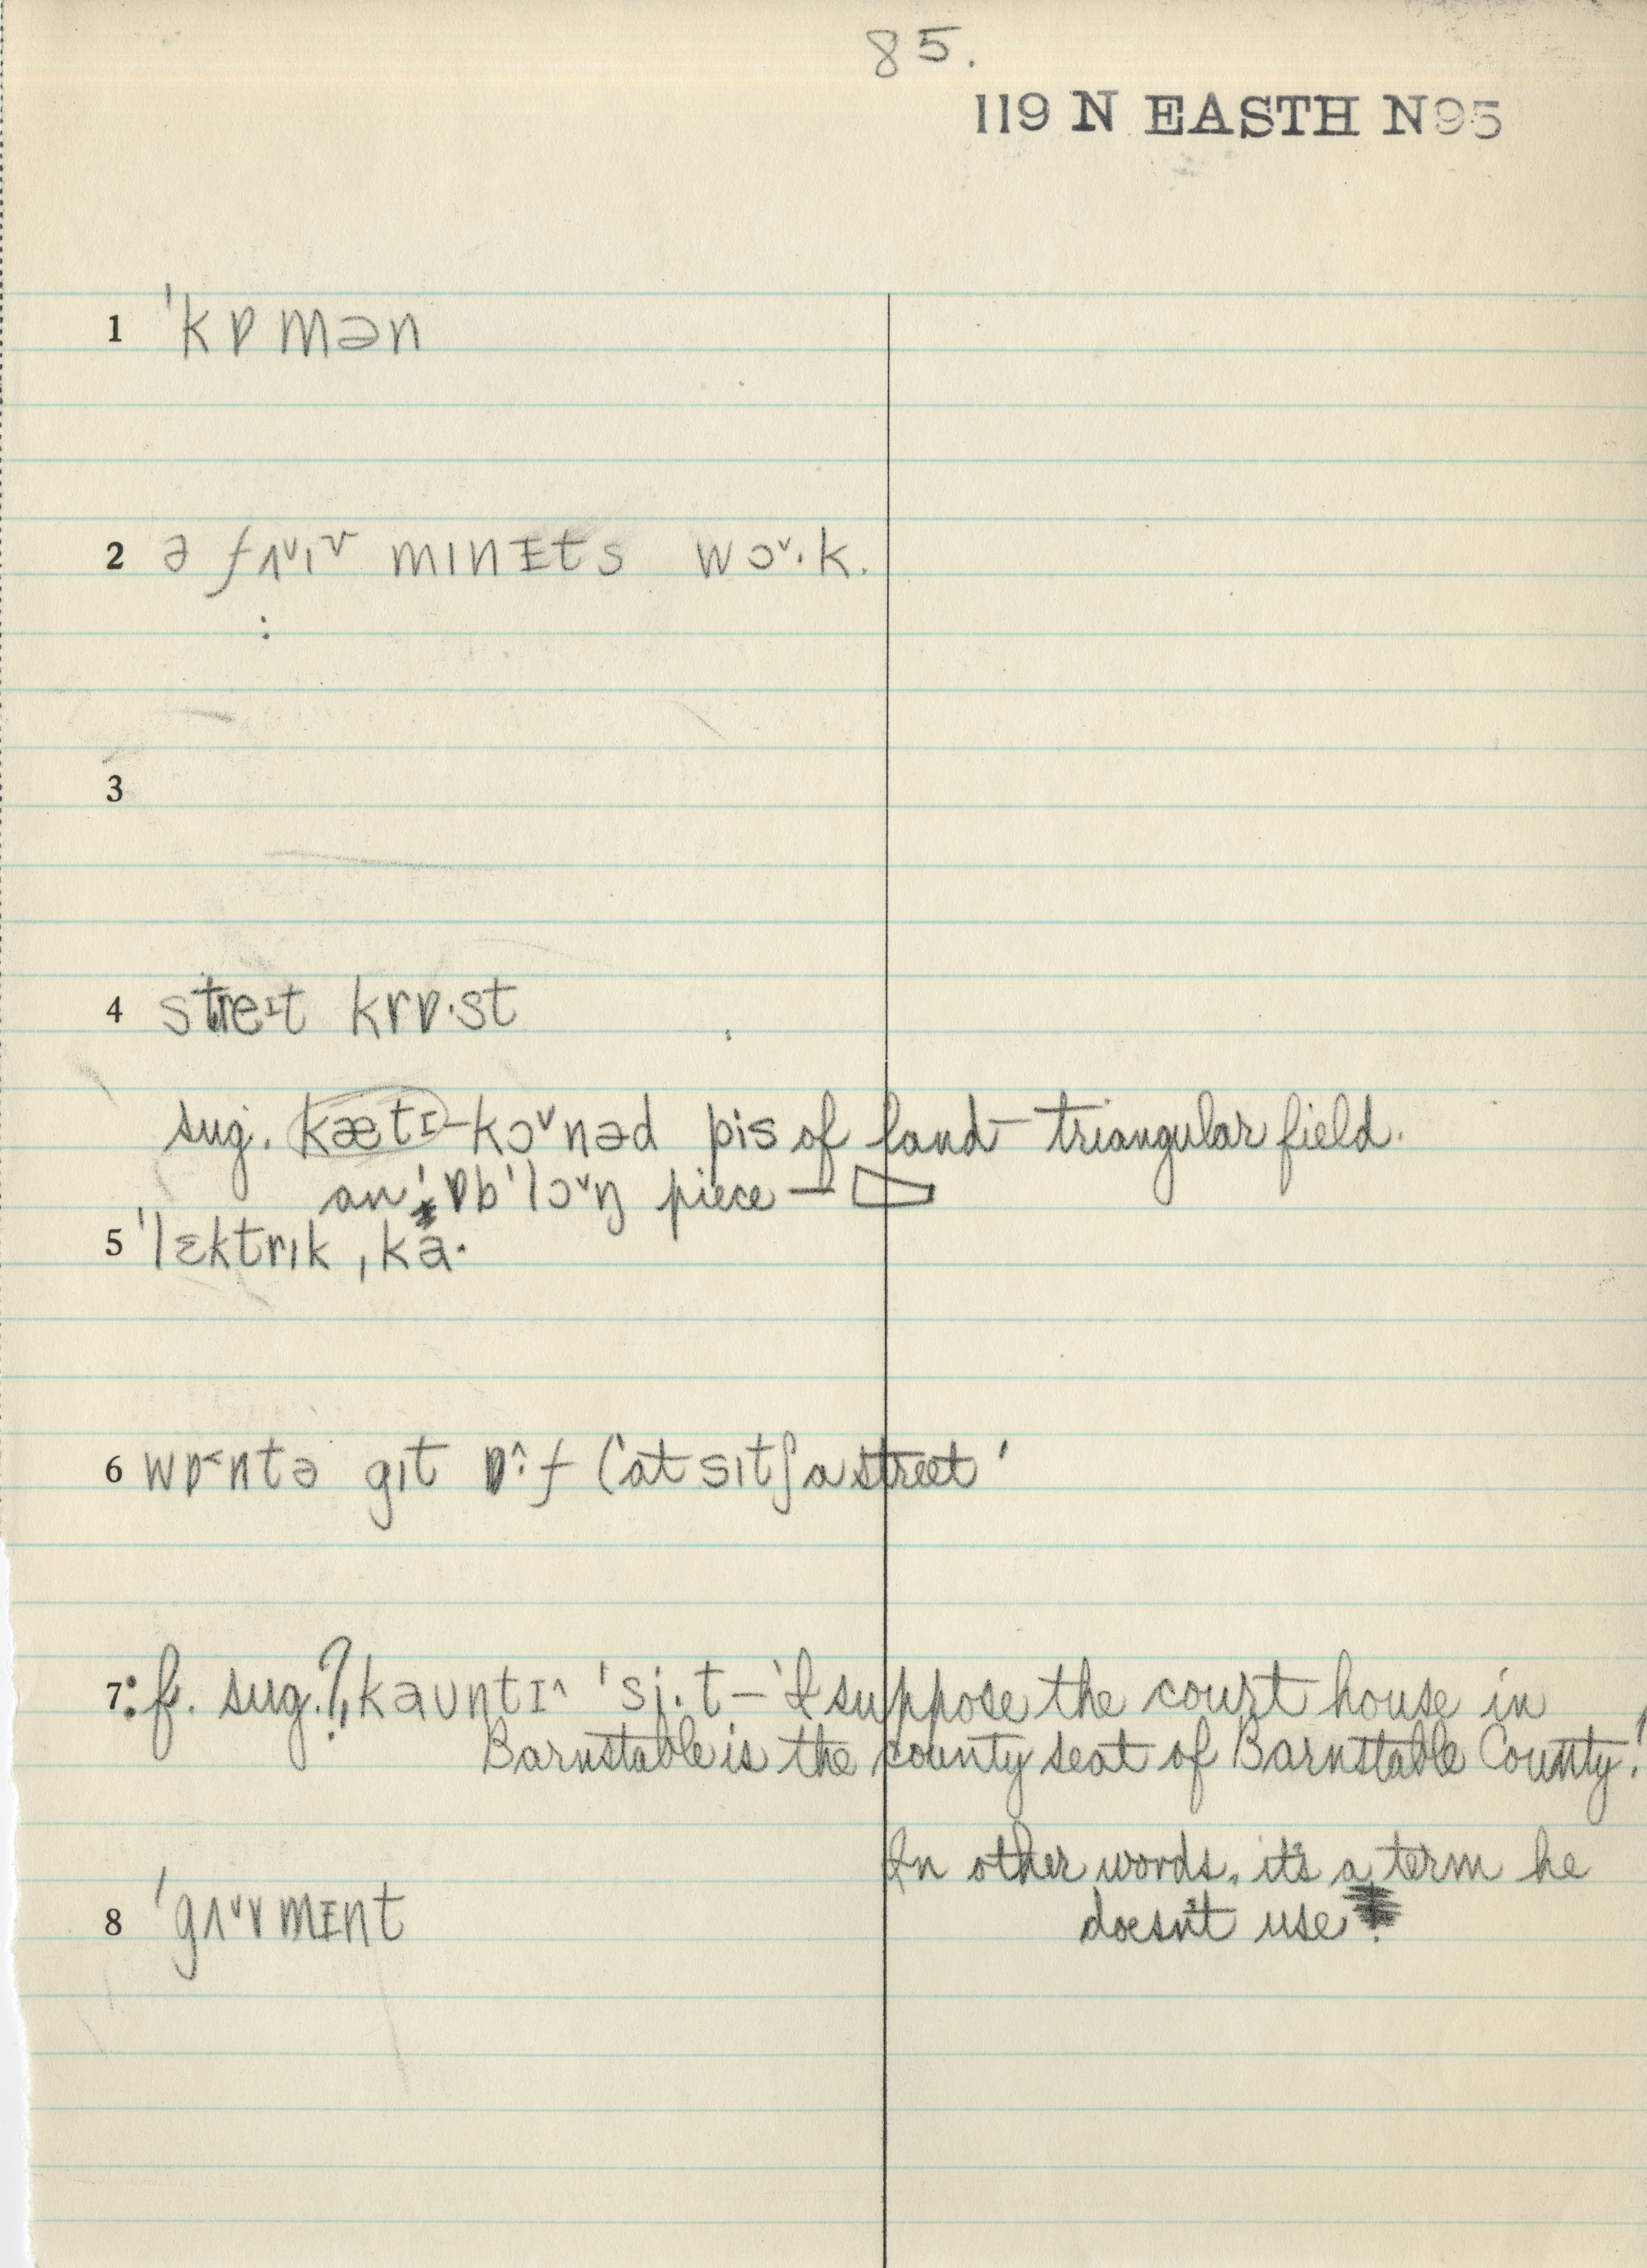 85.
119 N EASTH N95
1 ˈkɒmən
2 ə mɪnɪts wɔˇ·k.
3
4 streɪt krɒ·st
sug. kætɪ-kɔˇnəd pis of land – triangular field.
an ˈɒbˈlɔˇŋ piece –
5 ˈlɛktrɪk ˌka·
6 wɒ˂ntə gɪt ɒ^:f ('at sɪtʃ a street'
7: f. sug.? ˌkaʊntɪ^ ˈsi̭·t – 'I suppose the court house in
Barnstable is the county seat of Barnstable County.'
In other words, it's a term he
8 ˈgʌˇvmɪnt doesn't use.